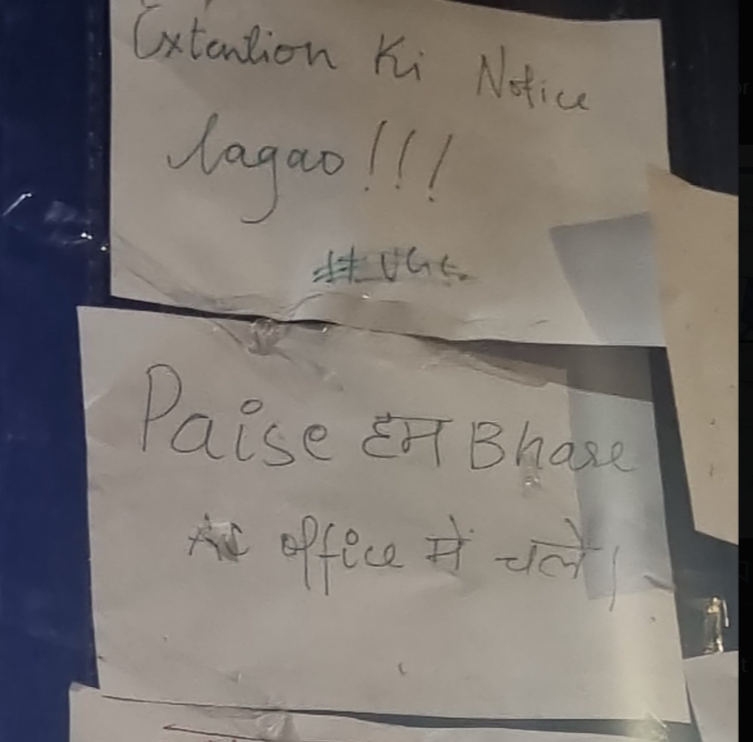 Extention Ki Notice
lagao!!!
Paise हम Bhare
AC office में चले।